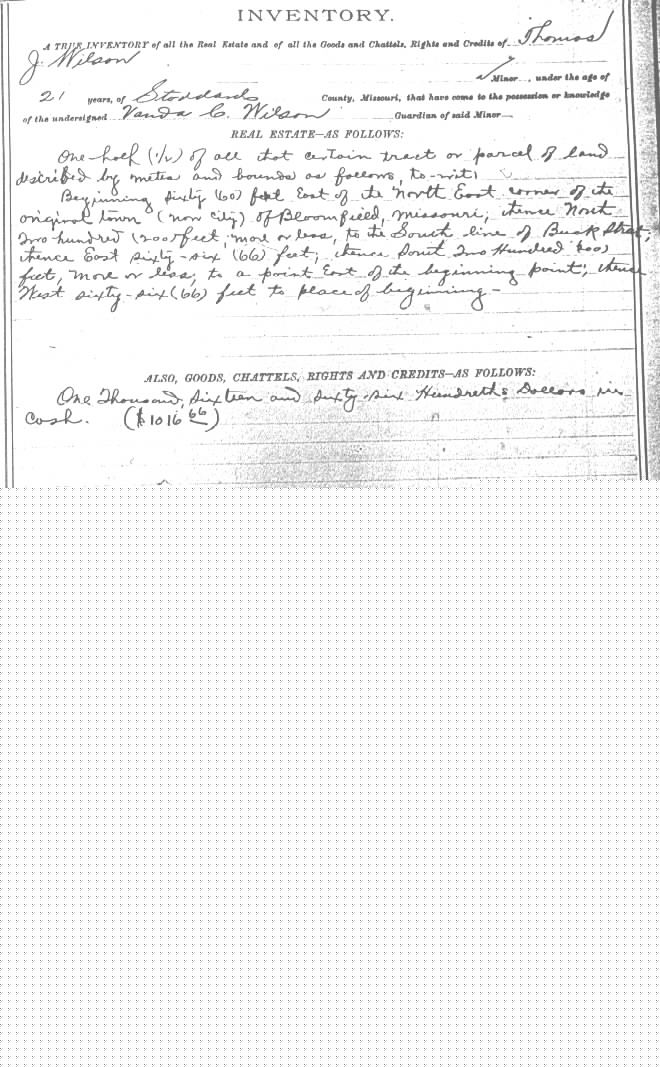 INVENTORY.
A TRUE INVENTORY of all the Real Estate and of all the Goods and Chattels, Rights and Credits of Thomas
J Wilson
Minor , under the age of
21 years, of Stoddard County, Missouri, that have come to the possession or knowledge
of the undersigned Vanda C. Wilson Guardian of said Minor
REAL ESTATE—AS FOLLOWS:
One-half (1/2) of all that certain tract or parcel of land
described by metes and bounds as follows, to-wit:
Beginning sixty (60) feet East of the North East corner of the
original town (now city) of Bloomfield, Missouri, thence North
Two hundred (200) feet, more or less, to the South line of Buck Street,
thence East sixty-six (66) feet, thence South Two Hundred (200)
feet, more or less, to a point East of the beginning point; thence
West sixty-six (66) feet to place of beginning -
ALSO, GOODS, CHATTELS, RIGHTS AND CREDITS—AS FOLLOWS:
One Thousand, Sixteen and Sixty-six Hundreths Dollars in
cash. ($1016 66)